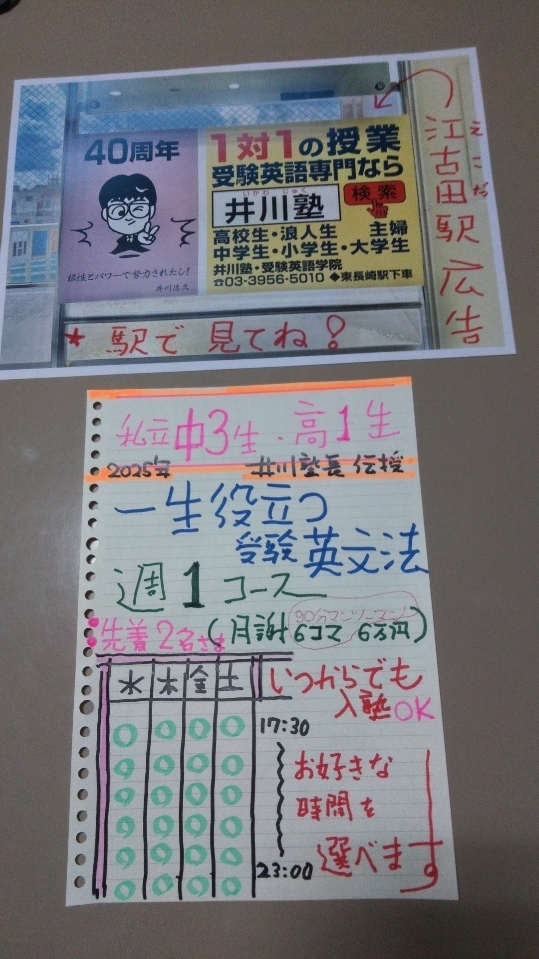 40周年
根性とパワーで努力されたし!
井川浩久
1対1の授業
受験英語専門なら
いかわ じゅく
井川塾
検索
高校生・浪人生 主婦
中学生・小学生・大学生
井川塾・受験英語学院
☎03-3956-5010 ◆東長崎駅下車
えこだ
江古田駅広告
* 駅で見てね!
私立中3生・高1生
2025年 井川塾長 伝授
一生役立つ
受験英文法
週1コース
先着2名さま
90分マンツーマン
(月謝6コマ 6万円)
水 木 金 土
いつからでも
入塾OK
17:30
お好きな
時間を
選べます
23:00